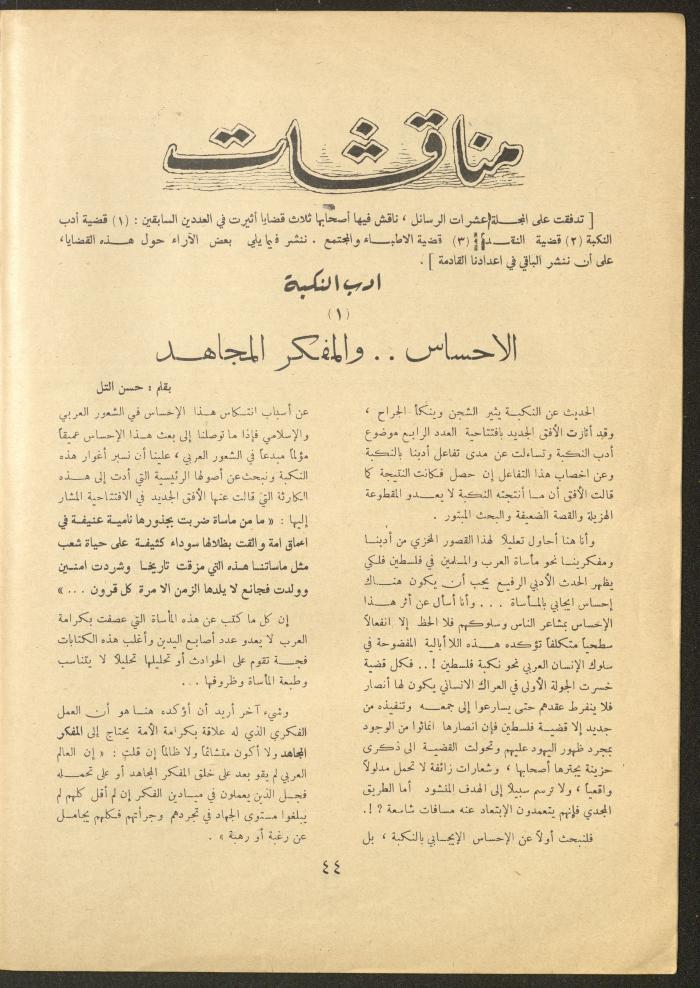 مناقشات
[ تدفقت على المجلة عشرات الرسائل ، ناقش فيها أصحابها ثلاث قضايا أثيرت في العددين السابقين : (١) قضية أدب
النكبة (٢) قضية النقد (٣) قضية الاطباء والمجتمع . ننشر فيما يلي بعض الآراء حول هذه القضايا،
على أن ننشر الباقي في اعدادنا القادمة ] .
ادب النكبة
(١)
الاحساس . . والمفكر المجاهد
بقلم : حسن التل
الحديث عن النكبة يثير الشجن وينكأ الجراح ،
وقد أثارت الأفق الجديد بافتتاحية العدد الرابع موضوع
أدب النكبة وتساءلت عن مدى تفاعل أدبنا بالنكبة
وعن اخصاب هذا التفاعل إن حصل فكانت النتيجة كما
قالت الأفق أن ما أنتجته النكبة لا يعدو المقطوعة
الهزيلة والقصة الضعيفة والبحث المبتور .
وأنا هنا أحاول تعليلاً لهذا القصور المخزي من أدبنا
ومفكرينا نحو مأساة العرب والمسلمين في فلسطين فلكي
يظهر الحدث الأدبي الرفيع يجب أن يكون هناك
إحساس ايجابي بالمأساة . . . وأنا أسأل عن أثر هذا
الإحساس بمشاعر الناس وسلوكهم فلا الحظ إلا انفعالاً
سطحياً متكلفاً تؤكده هذه اللاأبالية المفضوحة في
سلوك الإنسان العربي نحو نكبة فلسطين ! . . فكل قضية
خسرت الجولة الأولى في العراك الانساني يكون لها أنصار
فلا ينفرط عقدهم حتى يسارعوا إلى جمعه وتنفيذه من
جديد إلا قضية فلسطين فإن انصارها انماثوا من الوجود
بمجرد ظهور اليهود عليهم وتحولت القضية الى ذكرى
حزينة يجترها أصحابها ، وشعارات زائفة لا تحمل مدلولاً
واقعياً ، ولا ترسم سبيلاً إلى الهدف المنشود أما الطريق
المجدي فإنهم يتعمدون الإبتعاد عنه مسافات شاسعة ؟ ! .
فلنبحث أولاً عن الإحساس الإيجابي بالنكبة ، بل
عن أسباب انتكاس هذا الإحساس في الشعور العربي
والإسلامي فإذا ما توصلنا إلى بعث هذا الإحساس عميقاً
مؤلماً مبدعاً في الشعور العربي ، علينا أن نسبر أغوار هذه
النكبة ونبحث عن أصولها الرئيسية التي أدت إلى هذه
الكارثة التي قالت عنها الأفق الجديد في الافتتاحية المشار
إليها : « ما من ماساة ضربت بجذورها نامية عنيفة في
اعماق امة والقت بظلالها سوداء كثيفة على حياة شعب
مثل ماساتنا هذه التي مزقت تاريخا وشردت امنين
وولدت فجائع لا يلدها الزمن الا مرة كل قرون . . . »
إن كل ما كتب عن هذه المأساة التي عصفت بكرامة
العرب لا يعدو عدد أصابع اليدين وأغلب هذه الكتابات
فجة تقوم على الحوادث أو تحليلها تحليلاً لا يتناسب
وطبعة المأساة وظروفها . . .
وشيء آخر أريد أن أؤكده هنا هو أن العمل
الفكري الذي له علاقة بكرامة الأمة يحتاج إلى المفكر
المجاهد ولا أكون متشائماً ولا ظالماً إن قلت : « إن العالم
العربي لم يقو بعد على خلق المفكر المجاهد أو على تحمله
فجل الذين يعملون في ميادين الفكر إن لم أقل كلهم لم
يبلغوا مستوى الجهاد في تجردهم وجرأتهم فكلهم يجامل
عن رغبة أو رهبة » .
٤٤